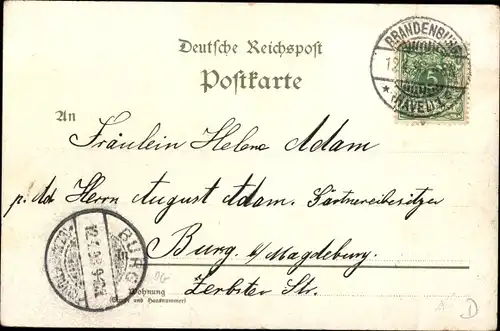 Deutsche Reichspost
Postkarte
BRANDENBURG
(HAVEL)
5
An
Fräulein Helene Adam
p. Ad Herrn August Adam. Gärtnereibesitzer
Burg b/Magdeburg.
BURG
Wohnung
(Straße und Hausnummer)
Zerbster Str.
D